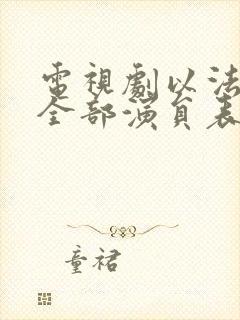 電視劇以法
全部演員表
童裙